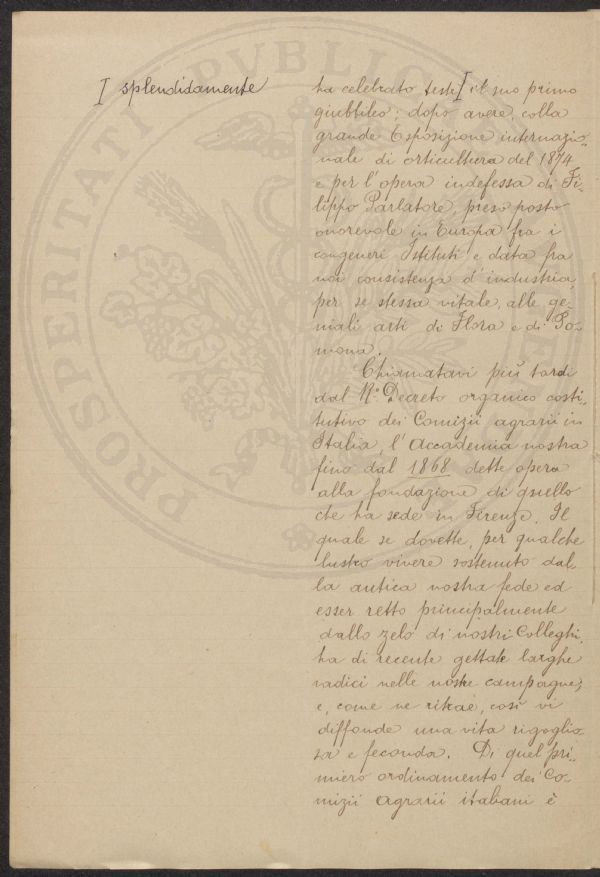 I splendidamente
ha celebrato testè I il suo primo
giubbileo; dopo avere, colla
grande Esposizione internazio-
nale di orticultura del 1874
e per l'opera indefessa di Fi-
lippo Parlatore, preso posto
onorevole in Europa fra i
congeneri Istituti e data fra
noi consistenza d'industria,
per se stessa vitale, alle ge-
niali arti di Flora e di Po-
mona.
Chiamatavi più tardi
dal R.º Decreto organico costi-
tutivo dei Comizii agrarii in
Italia, l'Accademia nostra
fino dal 1868 dette opera
alla fondazione di quello
che ha sede in Firenze. Il
quale se dovette, per qualche
lustro vivere sostenuto dal-
la antica nostra fede ed
esser retto principalmente
dallo zelo di nostri Colleghi,
ha di recente gettate larghe
radici nelle nostre campagne;
e, come ne ritrae, così vi
diffonde una vita rigoglio-
sa e feconda. Di quel pri-
miero ordinamento dei Co-
mizii agrarii italiani è
PROSPERITATI PVBLICAE